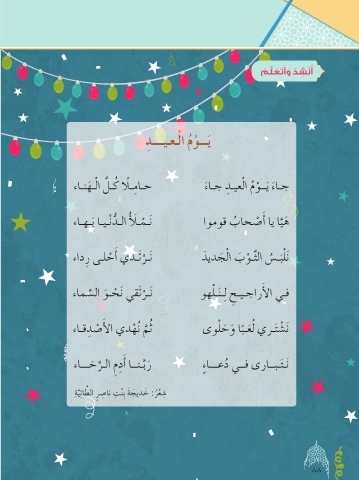 أُنْشِدُ وَأَتَعَلَّمُ
يَــوْمُ الْعيــدِ
جـاءَ يَـوْمُ الْعيـدِ جـاءَ حامِـلًا كُـلَّ الْـهَنـاء
هَيّا يا أَصْحابُ قوموا نَـمْـلَأُ الدُّنْيـا بَـهاء
نَلْبَسُ الثَّوْبَ الْجَديدَ نَرْتَدي أَحْلى رِداء
في الأَراجيـحِ لِنَـلْهو نَرْتَقي نَحْـوَ السَّماء
نَشْتَـري لُعَبًا وَحَلْوى ثُمَّ نُهْدي الأَصْدِقـاء
نَتَبـارى فـي دُعـاءٍ رَبَّنـا أَدِمِ الرَّخـاء
شِعْرُ: خَديجَةَ بِنْتِ ناصِرٍ الطّائِيَّةِ
٨٨